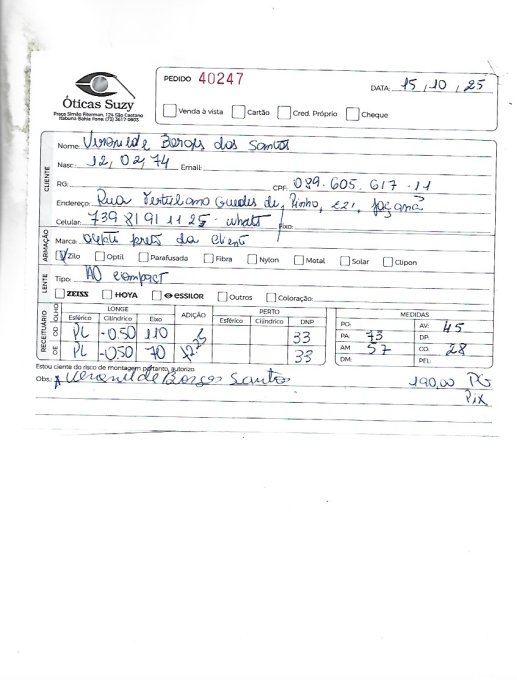 PEDIDO 40247
DATA: 15, 10, 25
Óticas Suzy
Praça Simão Fiterman, 124 São Caetano
Itabuna Bahia Fone: (73) 3617-0603
Venda à vista Cartão Cred. Próprio Cheque
CLIENTE
Nome: Veronilde Borges dos Santos
Nasc.: 12, 02, 74 Email:
RG: CPF: 029.605.617-11
Endereço: Rua Guedes de Pinho, 221, Jaçanã
Celular: 739 8191 1125 - whats Fixo:
ARMAÇÃO
Marca: preto da client
Zilo Optil Parafusada Fibra Nylon Metal Solar Clipon
LENTE
Tipo: AO compact
ZEISS HOYA essilor Outros Coloração:
RECEITUÁRIO
OLHO LONGE ADIÇÃO PERTO MEDIDAS
Esférico Cilíndrico Eixo Esférico Cilíndrico DNP
OD PL -0.50 110 33
OE PL -0.50 70 +2.25 33
PO: AV: 45
PA: 73 DP:
AM: 57 CO: 28
DM: PEL:
Estou ciente do risco de montagem portanto, autorizo.
Obs.: x Veronilde Borges Santos 190,00 PG
Pix